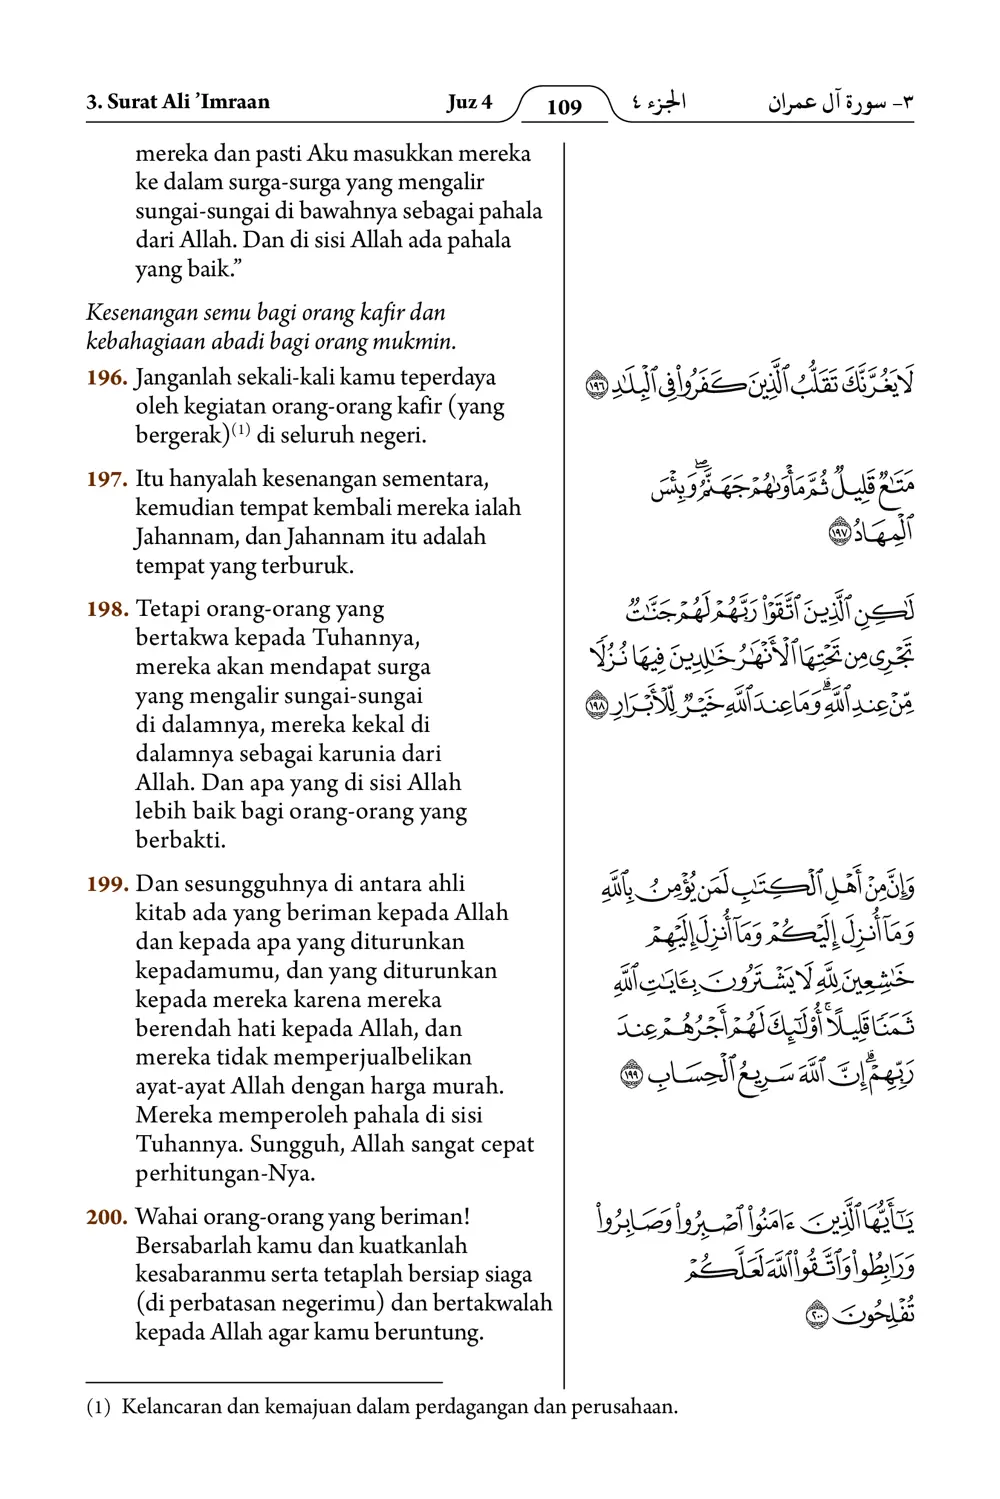 3. Surat Ali ’Imraan
Juz 4
109
الجزء ٤
٣- سورة آل عمران
mereka dan pasti Aku masukkan mereka
ke dalam surga-surga yang mengalir
sungai-sungai di bawahnya sebagai pahala
dari Allah. Dan di sisi Allah ada pahala
yang baik.”
Kesenangan semu bagi orang kafir dan
kebahagiaan abadi bagi orang mukmin.
196. Janganlah sekali-kali kamu teperdaya
oleh kegiatan orang-orang kafir (yang
bergerak)(1) di seluruh negeri.
197. Itu hanyalah kesenangan sementara,
kemudian tempat kembali mereka ialah
Jahannam, dan Jahannam itu adalah
tempat yang terburuk.
198. Tetapi orang-orang yang
bertakwa kepada Tuhannya,
mereka akan mendapat surga
yang mengalir sungai-sungai
di dalamnya, mereka kekal di
dalamnya sebagai karunia dari
Allah. Dan apa yang di sisi Allah
lebih baik bagi orang-orang yang
berbakti.
199. Dan sesungguhnya di antara ahli
kitab ada yang beriman kepada Allah
dan kepada apa yang diturunkan
kepadamumu, dan yang diturunkan
kepada mereka karena mereka
berendah hati kepada Allah, dan
mereka tidak memperjualbelikan
ayat-ayat Allah dengan harga murah.
Mereka memperoleh pahala di sisi
Tuhannya. Sungguh, Allah sangat cepat
perhitungan-Nya.
200. Wahai orang-orang yang beriman!
Bersabarlah kamu dan kuatkanlah
kesabaranmu serta tetaplah bersiap siaga
(di perbatasan negerimu) dan bertakwalah
kepada Allah agar kamu beruntung.
لَا يَغُرَّنَّكَ تَقَلُّبُ ٱلَّذِينَ كَفَرُوا۟ فِى ٱلْبِلَٰدِ ١٩٦
مَتَٰعٌ قَلِيلٌ ثُمَّ مَأْوَىٰهُمْ جَهَنَّمُ ۖ وَبِئْسَ
ٱلْمِهَادُ ١٩٧
لَٰكِنِ ٱلَّذِينَ ٱتَّقَوْا۟ رَبَّهُمْ لَهُمْ جَنَّٰتٌ
تَجْرِى مِن تَحْتِهَا ٱلْأَنْهَٰرُ خَٰلِدِينَ فِيهَا نُزُلًا
مِّنْ عِندِ ٱللَّهِ ۗ وَمَا عِندَ ٱللَّهِ خَيْرٌ لِّلْأَبْرَارِ ١٩٨
وَإِنَّ مِنْ أَهْلِ ٱلْكِتَٰبِ لَمَن يُؤْمِنُ بِٱللَّهِ
وَمَآ أُنزِلَ إِلَيْكُمْ وَمَآ أُنزِلَ إِلَيْهِمْ
خَٰشِعِينَ لِلَّهِ لَا يَشْتَرُونَ بِـَٔايَٰتِ ٱللَّهِ
ثَمَنًا قَلِيلًا ۗ أُو۟لَٰٓئِكَ لَهُمْ أَجْرُهُمْ عِندَ
رَبِّهِمْ ۗ إِنَّ ٱللَّهَ سَرِيعُ ٱلْحِسَابِ ١٩٩
يَٰٓأَيُّهَا ٱلَّذِينَ ءَامَنُوا۟ ٱصْبِرُوا۟ وَصَابِرُوا۟
وَرَابِطُوا۟ وَٱتَّقُوا۟ ٱللَّهَ لَعَلَّكُمْ
تُفْلِحُونَ ٢٠٠
(1) Kelancaran dan kemajuan dalam perdagangan dan perusahaan.